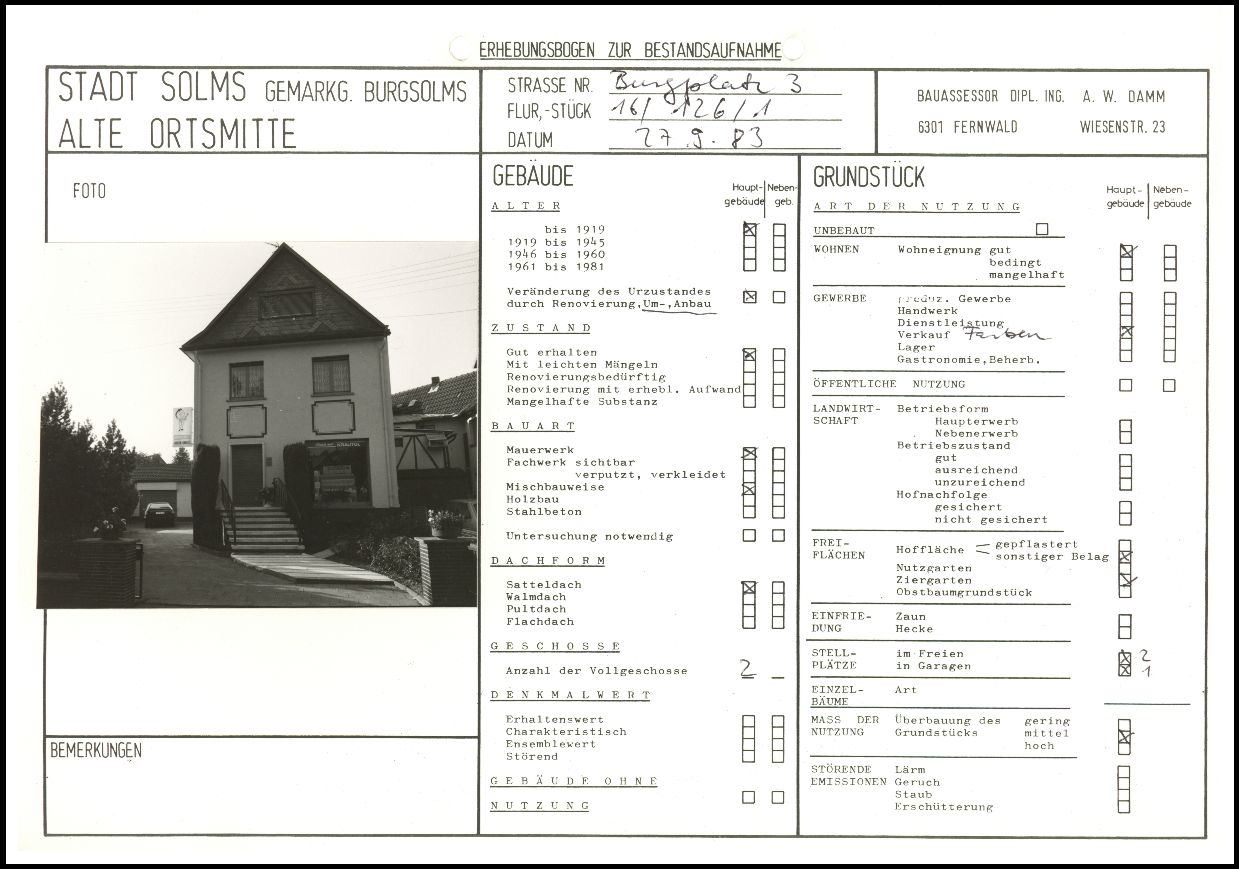 ERHEBUNGSBOGEN ZUR BESTANDSAUFNAHME
STADT SOLMS GEMARKG. BURGSOLMS
ALTE ORTSMITTE
STRASSE NR. Burgplatz 3
FLUR,-STÜCK 16/ 126/1
DATUM 27.9.83
BAUASSESSOR DIPL. ING. A. W. DAMM
6301 FERNWALD WIESENSTR. 23
FOTO
BEMERKUNGEN
GEBÄUDE
Haupt- Neben-
gebäude geb.
ALTER
bis 1919
1919 bis 1945
1946 bis 1960
1961 bis 1981
Veränderung des Urzustandes
durch Renovierung,Um-,Anbau
ZUSTAND
Gut erhalten
Mit leichten Mängeln
Renovierungsbedürftig
Renovierung mit erhebl. Aufwand
Mangelhafte Substanz
BAUART
Mauerwerk
Fachwerk sichtbar
verputzt, verkleidet
Mischbauweise
Holzbau
Stahlbeton
Untersuchung notwendig
DACHFORM
Satteldach
Walmdach
Pultdach
Flachdach
GESCHOSSE
Anzahl der Vollgeschosse 2
DENKMALWERT
Erhaltenswert
Charakteristisch
Ensemblewert
Störend
GEBÄUDE OHNE
NUTZUNG
GRUNDSTÜCK
Haupt- Neben-
gebäude gebäude
ART DER NUTZUNG
UNBEBAUT
WOHNEN Wohneignung gut
bedingt
mangelhaft
GEWERBE produz. Gewerbe
Handwerk
Dienstleistung
Verkauf Farben
Lager
Gastronomie,Beherb.
ÖFFENTLICHE NUTZUNG
LANDWIRT- Betriebsform
SCHAFT Haupterwerb
Nebenerwerb
Betriebszustand
gut
ausreichend
unzureichend
Hofnachfolge
gesichert
nicht gesichert
FREI- gepflastert
FLÄCHEN Hoffläche sonstiger Belag
Nutzgarten
Ziergarten
Obstbaumgrundstück
EINFRIE- Zaun
DUNG Hecke
STELL- im Freien 2
PLÄTZE in Garagen 1
EINZEL- Art
BÄUME
MASS DER Überbauung des gering
NUTZUNG Grundstücks mittel
hoch
STÖRENDE Lärm
EMISSIONEN Geruch
Staub
Erschütterung